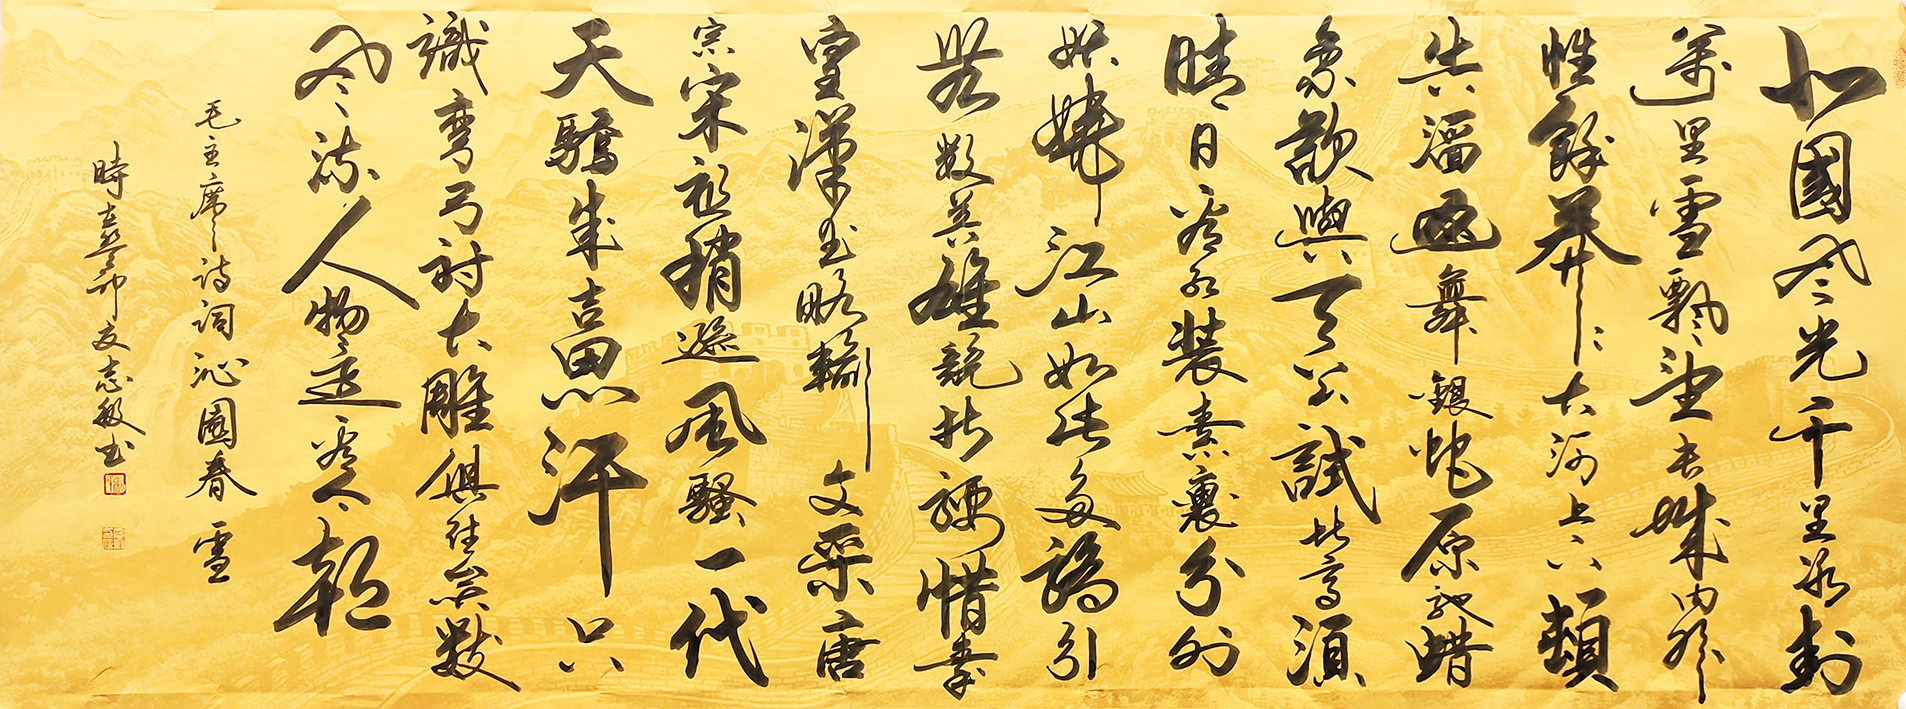 北國風光千里冰封
萬里雪飄望長城内外
惟餘莽々大河上下頓
失滔舞銀蛇原馳蜡
象欲與天公試比高須
晴日看紅裝素裹分外
妖嬈江山如此多嬌引
無数英雄競折腰惜秦
皇漢武略輸文采唐
宗宋祖稍遜風騷一代
天驕成吉思汗只
識彎弓射大雕俱往矣数
風流人物還看今朝
毛主席詩詞沁園春雪
時卯友志敏书